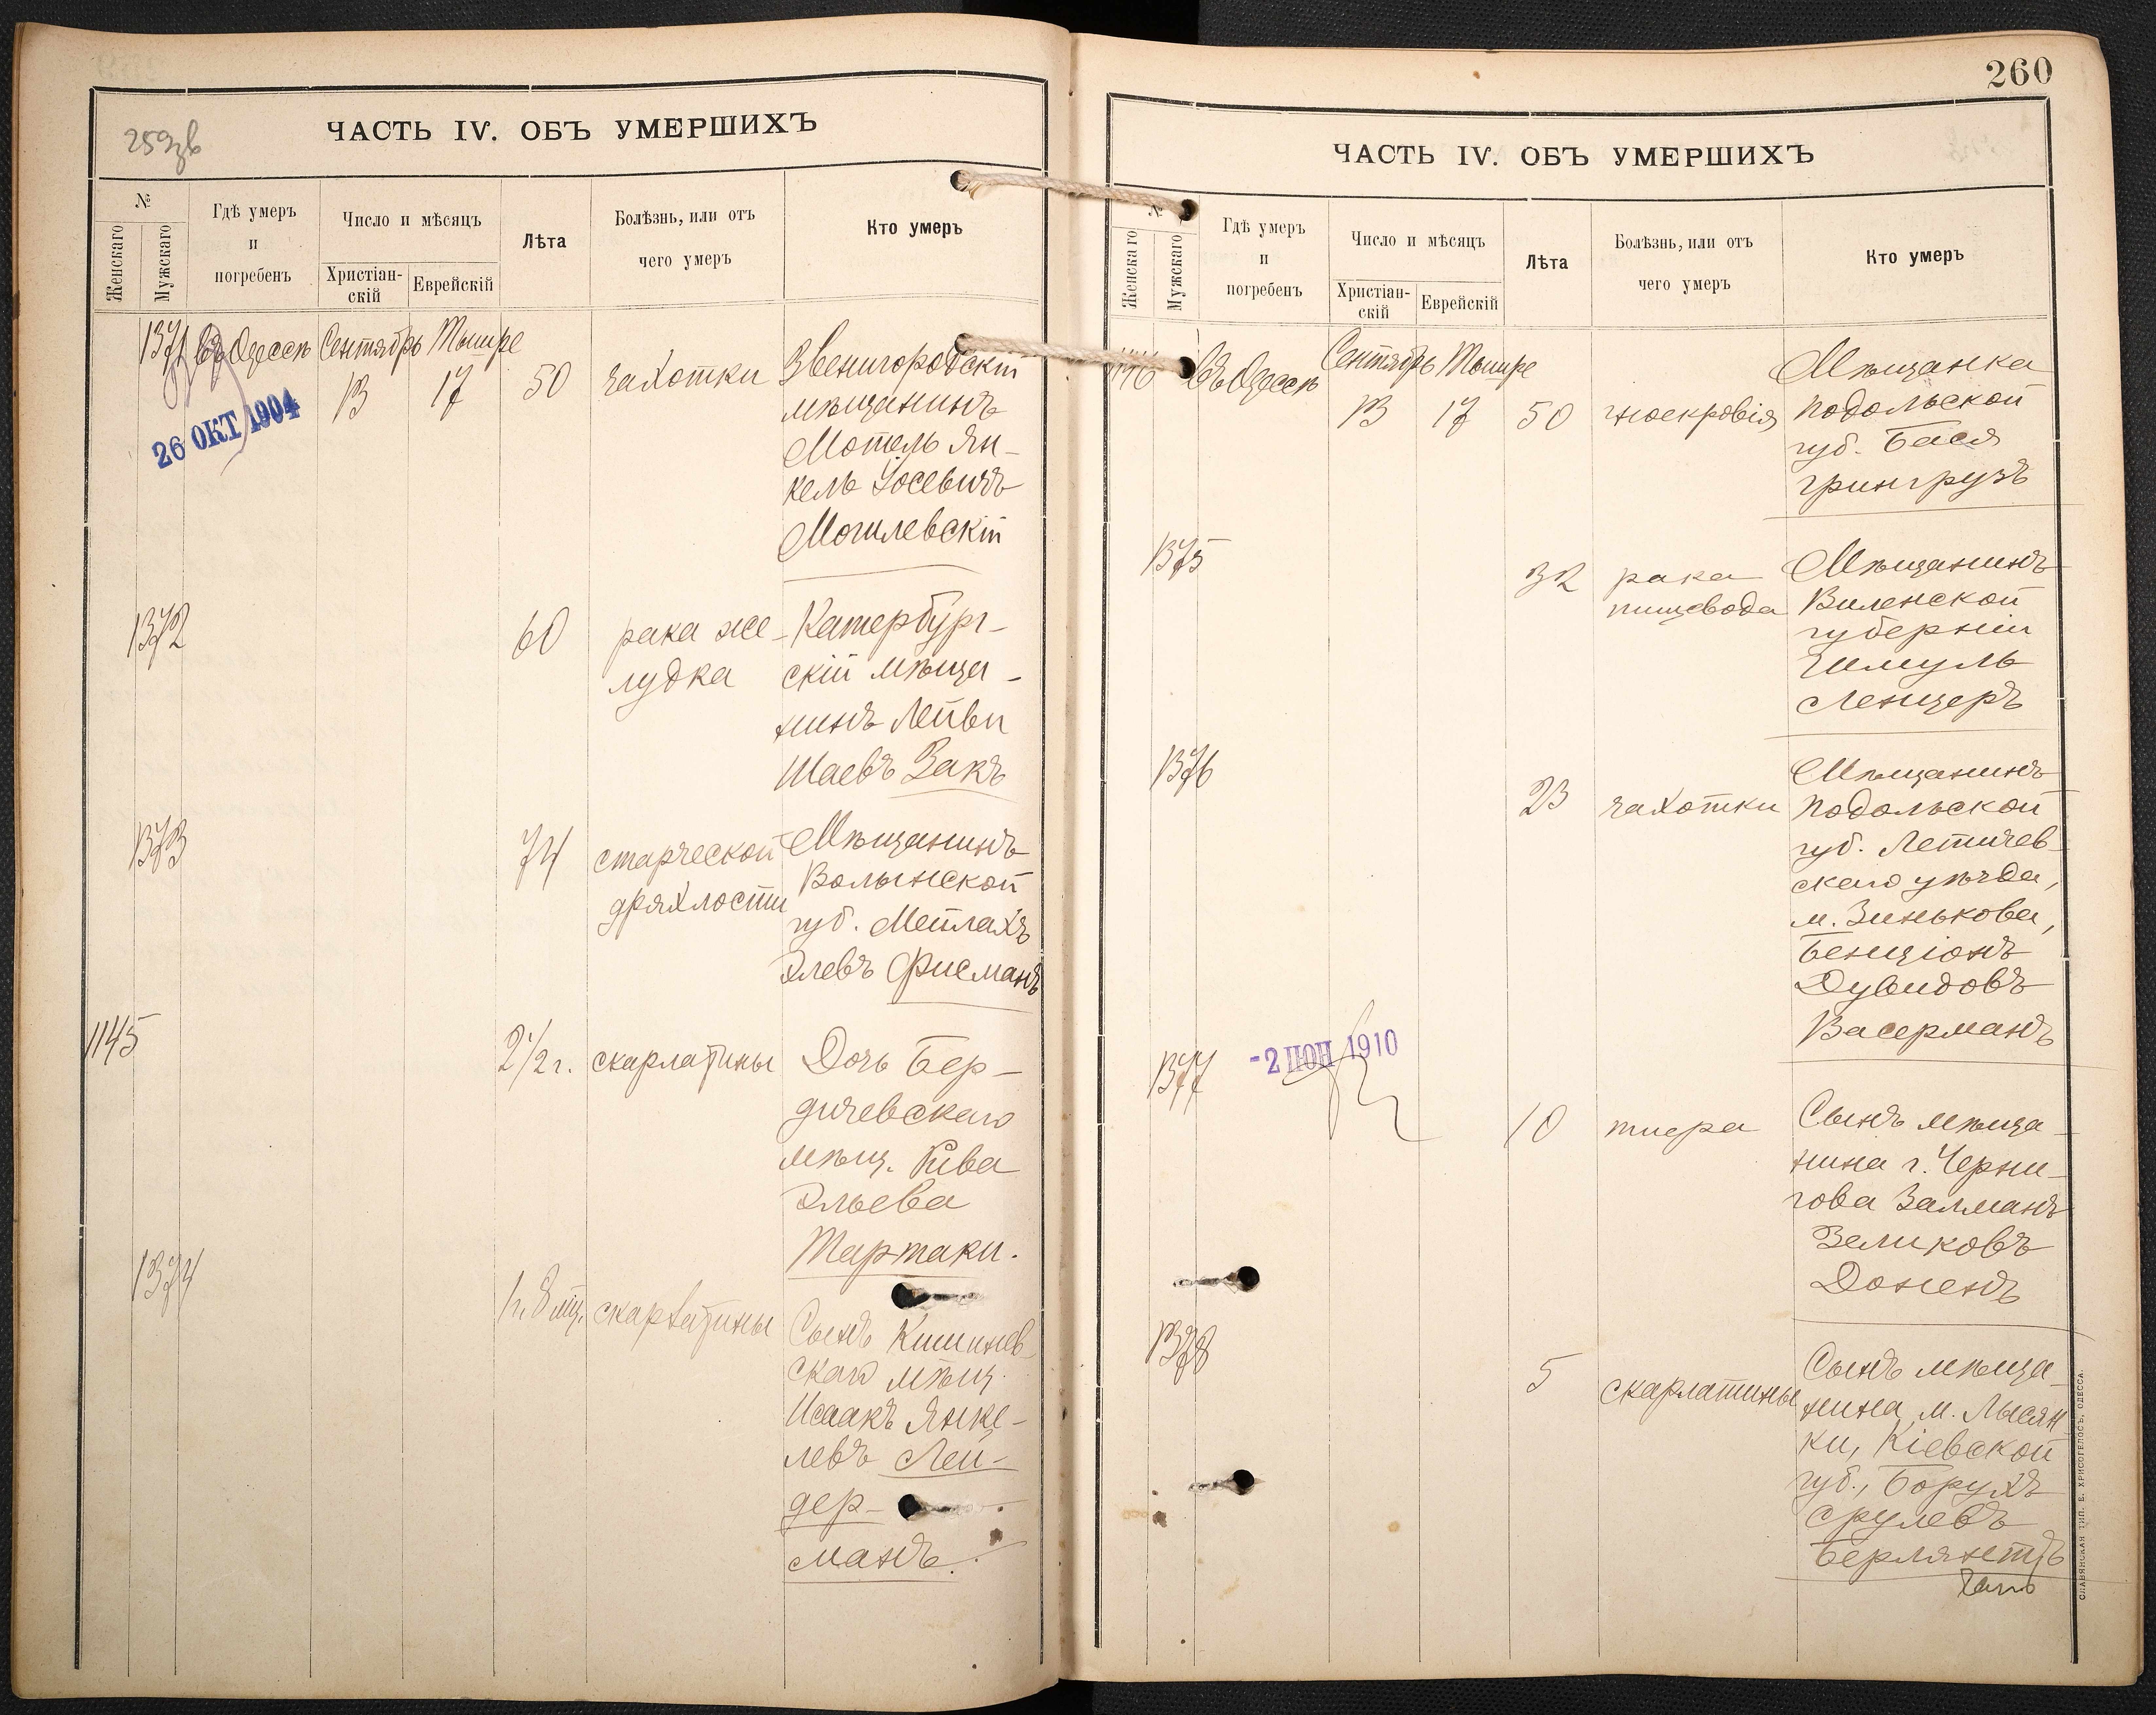 259 зв
ЧАСТЬ IV. ОБЪ УМЕРШИХЪ
№
Женскаго
Мужскаго
Гдѣ умеръ
и
погребенъ
Число и мѣсяцъ
Христіан-
скій
Еврейскій
Лѣта
Болѣзнь, или отъ
чего умеръ
Кто умеръ
1371 въ Одессѣ Сентябрь Тышре
13 17 50 чахотки Звенигородскій
мѣщанинъ
Мотель Ян-
кель Іосевичъ
Могилевскій
26 ОКТ 1904
1372 60 рака же- Катербург-
лудка скій мѣща-
нинъ Лейви
Шаевъ Закъ
1373 74 старческой Мѣщанинъ
дряхлости Волынской
губ. Мейлахъ
Элевъ Фисманъ
1145 2 1/2 г. скарлатины Дочь Бер-
дичевскаго
мѣщ. Рива
Эльева
Тартаки.
1374 1 г. 8 мц. скарлатины Сынъ Кишинев-
скаго мѣщ.
Исаакъ Янке-
левъ Лей-
дер-
манъ.
260
ЧАСТЬ IV. ОБЪ УМЕРШИХЪ
№
Женскаго
Мужскаго
Гдѣ умеръ
и
погребенъ
Число и мѣсяцъ
Христіан-
скій
Еврейскій
Лѣта
Болѣзнь, или отъ
чего умеръ
Кто умеръ
1146 въ Одессѣ Сентябрь Тышре Мѣщанка
13 17 50 гноекровія Подольской
губ. Бася
Грингрузъ
1375 32 рака Мѣщанинъ
пищевода Виленской
губерніи
Шмуль
Ленцеръ
1376 23 чахотки Мѣщанинъ
Подольской
губ. Летичев-
скаго уѣзда,
м. Зинькова,
Бенціонъ
Дувидовъ
Васерманъ
1377 -2 ІЮН 1910
10 тифа Сынъ мѣща-
нина г. Черни-
гова Залманъ
Зеликовъ
Доненъ
1378 5 скарлатины Сынъ мѣща-
нина, м. Лысян-
ки, Кіевской
губ., Борухъ
Срулевъ
Берлянетъ
СЛАВЯНСКАЯ ТИП. Е. ХРИСОГЕЛОСЪ, ОДЕССА.